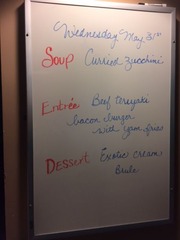 Wednesday May 31st
Soup Curried Zucchini
Entrée Beef teriyaki
bacon burger
with yam fries
Dessert Exotic cream
Brule